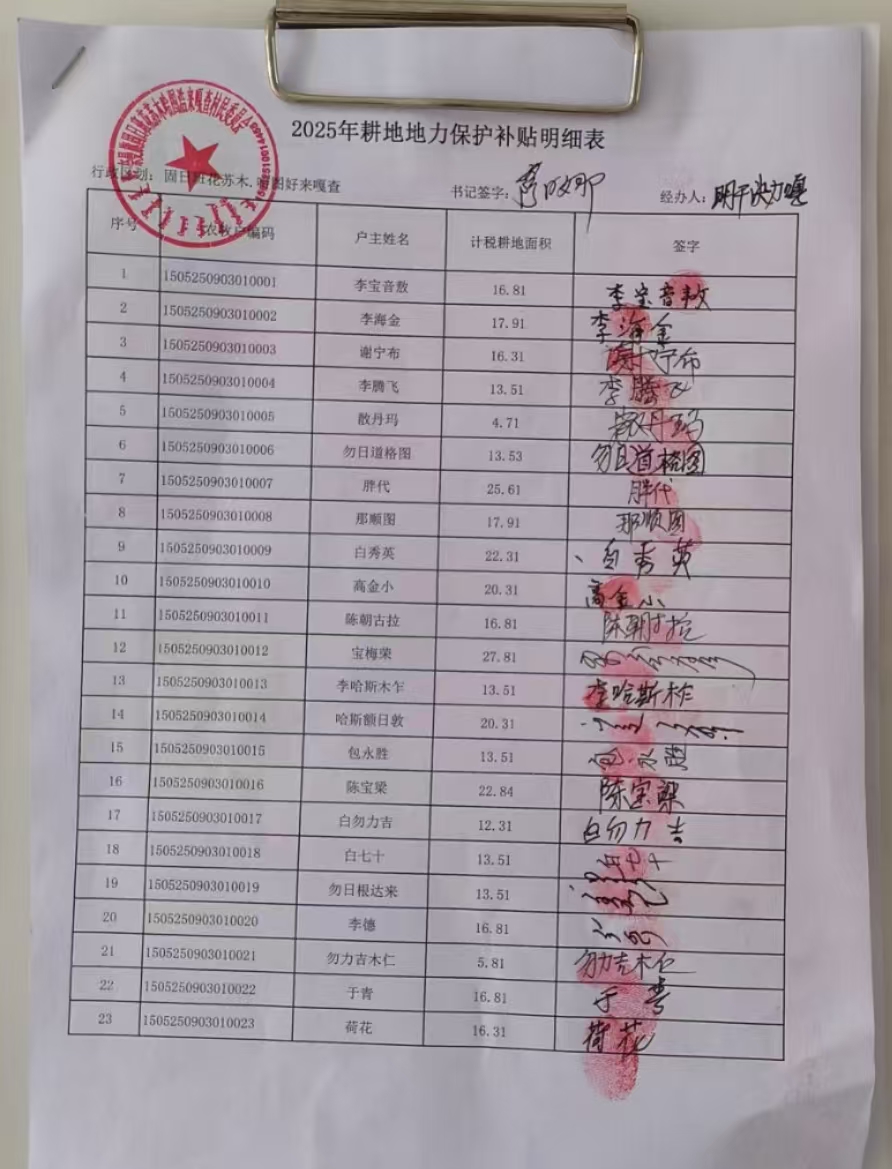 2025年耕地地力保护补贴明细表
行政区划：固日班花苏木.哈图好来嘎查 书记签字： 经办人：
序号 农牧户编码 户主姓名 计税耕地面积 签字
1 1505250903010001 李宝音敖 16.81 李宝音敖
2 1505250903010002 李海金 17.91 李海金
3 1505250903010003 谢宁布 16.31 谢宁布
4 1505250903010004 李腾飞 13.51 李腾飞
5 1505250903010005 散丹玛 4.71 散丹玛
6 1505250903010006 勿日道格图 13.53 勿日道格图
7 1505250903010007 胖代 25.61 胖代
8 1505250903010008 那顺图 17.91 那顺图
9 1505250903010009 白秀英 22.31 白秀英
10 1505250903010010 高金小 20.31 高金小
11 1505250903010011 陈朝古拉 16.81 陈朝古拉
12 1505250903010012 宝梅荣 27.81
13 1505250903010013 李哈斯木乍 13.51 李哈斯木乍
14 1505250903010014 哈斯额日敦 20.31
15 1505250903010015 包永胜 13.51 包永胜
16 1505250903010016 陈宝梁 22.84 陈宝梁
17 1505250903010017 白勿力吉 12.31 白勿力吉
18 1505250903010018 白七十 13.51 白七十
19 1505250903010019 勿日根达来 13.51
20 1505250903010020 李德 16.81
21 1505250903010021 勿力吉木仁 5.81 勿力吉木仁
22 1505250903010022 于青 16.81 于青
23 1505250903010023 荷花 16.31 荷花